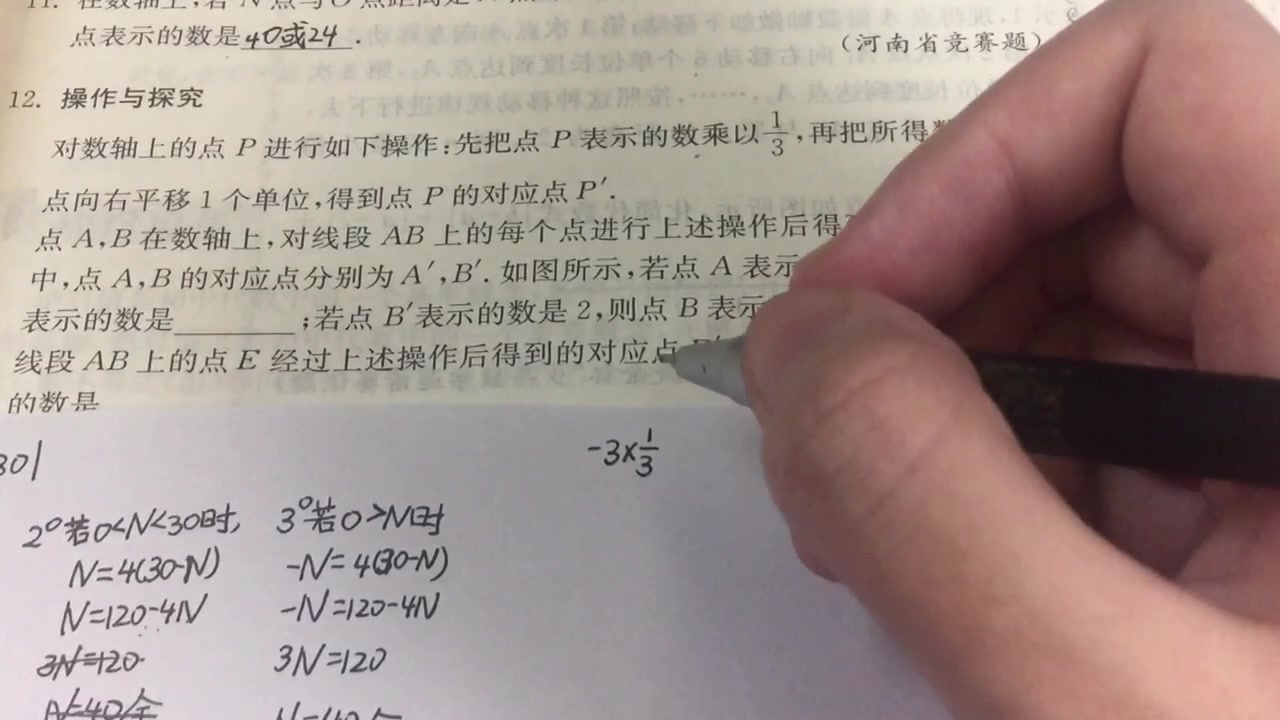 点表示的数是40或24.
(河南省竞赛题)
12. 操作与探究
对数轴上的点 P 进行如下操作:先把点 P 表示的数乘以1/3,再把所得
点向右平移 1 个单位,得到点 P 的对应点 P′.
点 A,B 在数轴上,对线段 AB 上的每个点进行上述操作后得
中,点 A,B 的对应点分别为 A′,B′. 如图所示,若点 A 表示
表示的数是________;若点 B′表示的数是 2,则点 B 表示
线段 AB 上的点 E 经过上述操作后得到的对应点
的数是
30|
-3×1/3
2° 若0<N<30时,
3° 若0>N时
N=4(30-N)
-N=4(30-N)
N=120-4N
-N=120-4N
3N=120
3N=120